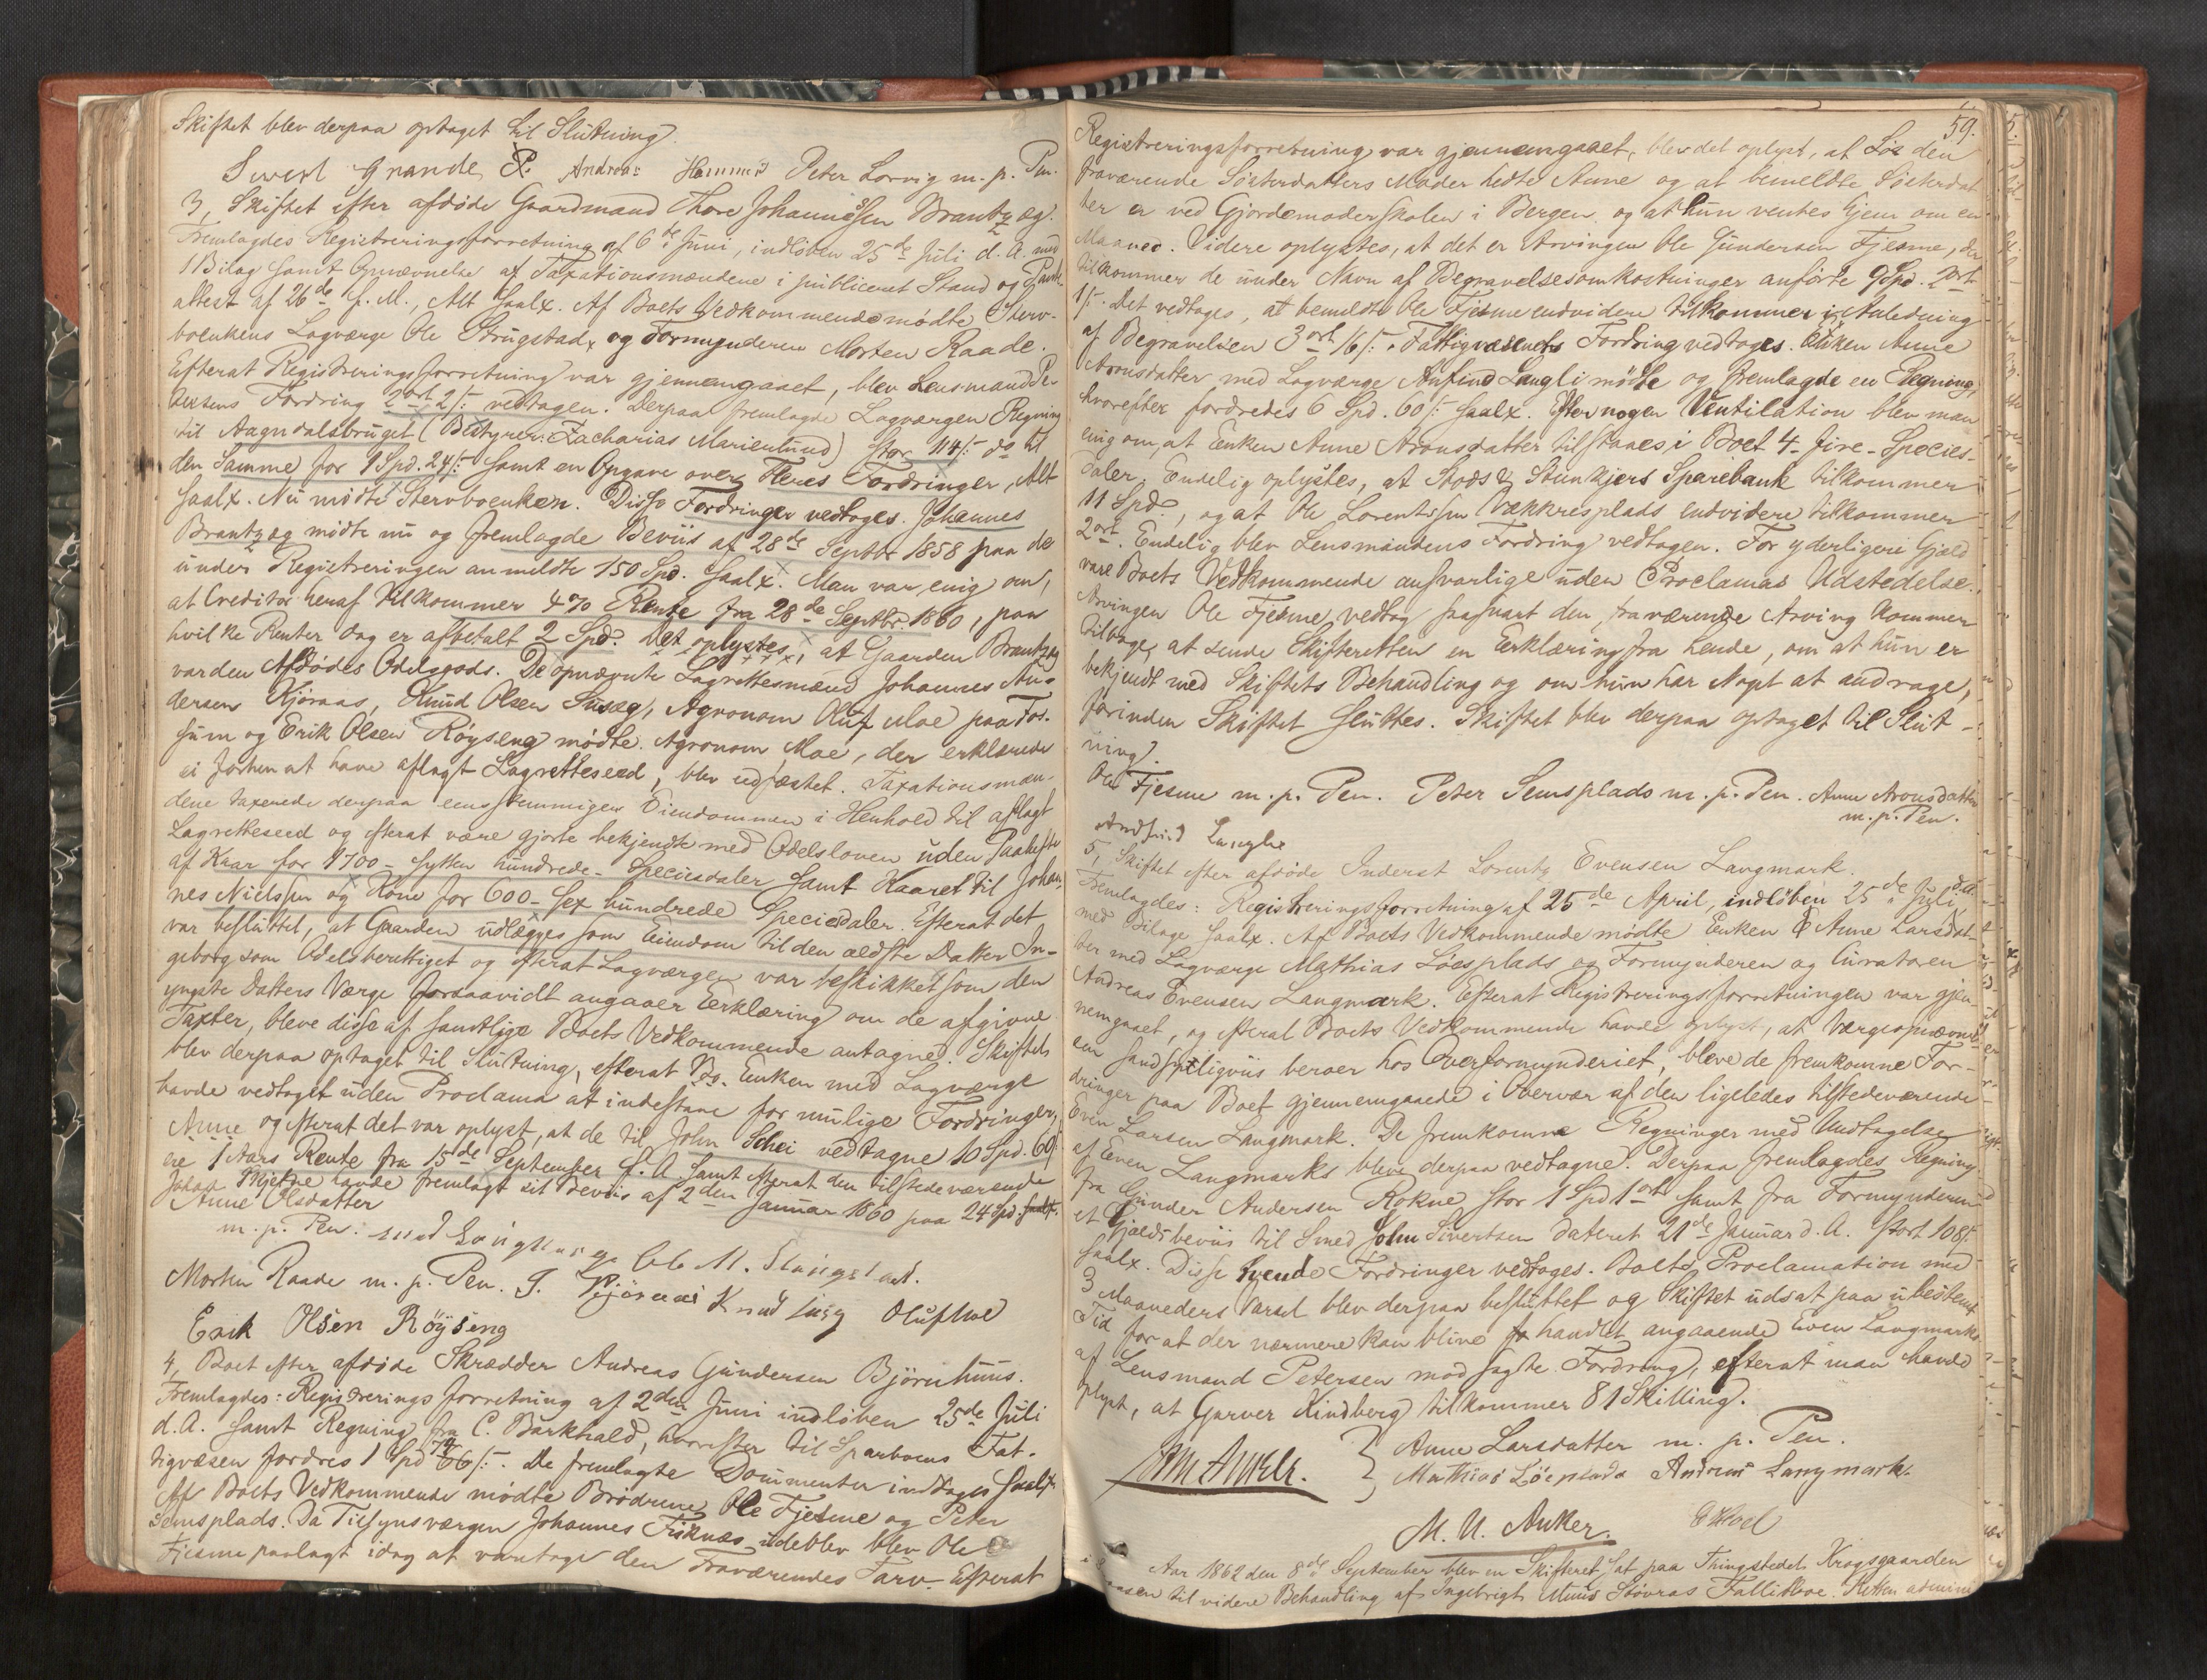 Skiftet blev derpaa optaget til Slutning.
Sivert Grande P. Andreas Hammer Peter Lorvig m. p. Pen.
3, Skiftet efter afdøde Gaardmand Thore Johannessen Brantzæg.
Fremlagdes Registreringsforretning af 6de Juni, indløben 25de Juli d. A. med
1 Bilag samt Opnævnelse af Taxationsmændene i publiceret Stand og Pante-
attest af 26de f. M., Alt saalx. Af Boets Vedkommende mødte Sterv-
boenkens Lagværge Ole Strugstad, og Formynderen Morten Raade.
Efterat Registreringsforretning var gjennemgaaet, blev Lensmand Pe-
tersens Fordring 2 ort 2 /: vedtagen. Derpaa fremlagde Lagværgen Regning
til Aagndalsbruget (Bestyrer: Zacharias Marienlund) stor 114 /: do til
den Samme for 1 Spd. 24 /: samt en Opgave over Fleres Fordringer, Alt
saalx. Nu mødte Stervboenken. Disse Fordringer vedtoges. Johannes
Brantzæg mødte nu og fremlagde Beviis af 28de Septbr 1858 paa de
under Registreringen anmeldte 150 Spd. saalx. Man var enig om,
at Creditor heraf tilkommer 4 % Rente fra 28de Septbr. 1860, paa
hvilke Renter dog er afbetalt 2 Spd. Det oplystes, at Gaarden Brantzæg
var den Afdødes Odelsgods. De opnævnte Lagrettesmænd Johannes An-
dersen Kjøraas, Knud Olsen Susæg, Agronom Oluf Moe paa Fos-
sum og Erik Olsen Röyseng mødte. Agronom Moe, der erklærede
ei forhen at have aflagt Lagretteseed, blev udfæstet. Taxationsmæn-
dene taxerede derpaa eensstemmigen Eiendommen i Henhold til aflagt
Lagretteseed og efterat være gjorte bekjendte med Odelsloven uden Paaheftelse
af Kaar for 1700 - sytten hundrede - Speciesdaler samt Kaaret til Johan-
nes Nielssen og Kone for 600 - sex hundrede Speciesdaler. Efterat det
var besluttet, at Gaarden udlægges som Eiendom til den ældste Datter In-
geborg som Odelsberettiget og efterat Lagværgen var beskikket som den
yngste Datters Værge forsaavidt angaaer Erklæring om de afgivne
Taxter, bleve disse af samtlige Boets Vedkommende antagne. Skiftet
blev derpaa optaget til Slutning, efterat Bo. Enken med Lagværge
havde vedtaget uden Proclama at indestaae for mulige Fordringer,
og efterat det var oplyst, at de til John Schei vedtagne 10 Spd. 60 /:
ere 1 Aars Rente fra 15de September f. A. samt efterat den tilstedeværende
havde fremlagt sit Beviis af 2den Januar 1860 paa 24 Spd. saalx.
Anne Olsdatter
m. p. Pen. med Laugværge Ole M. Strugstad.
Morten Raade m. p. Pen. J. Kjöraas Knud Susæg Oluf Moe
Erik Olsen Röyseng
4, Boet efter afdøde Skrædder Andreas Gundersen Björnhuus.
Fremlagdes: Registreringsforretning af 2den Juni indløben 25de Juli
d. A. samt Regning fra C. Burkhald, hvorefter til Sparboens Fat-
tigvæsen fordres 1 Spd 66 /:. De fremlagte Documenter indtages saalx.
Af Boets Vedkommende mødte Brødrene Ole Fjesme og Peter
Semsplads. Da Tilsynsværgen Johannes Fisknæs udeblev blev Ole
Fjesme paalagt idag at varetage den Fraværendes Tarv. Efterat
59.
Registreringsforretning var gjennemgaaet, blev det oplyst, at den
fraværende Søsterdatters Moder hedte Anne og at bemeldte Søsterdat-
ter er ved Gjordemoderskolen i Bergen, og at hun ventes hjem om en
Maaned. Videre oplystes, at det er Arvingen Ole Gundersen Fjesme, der
tilkommer de under Navn af Begravelsesomkostninger anførte 9 Spd. 2 ort
1 /:. Det vedtages, at bemeldte Ole Fjesme endvidere tilkommer i Anledning
af Begravelsen 3 ort 16 /:. Fattigvæsenets Fordring vedtoges. Enken Anne
Aronsdatter med Lagværge Anfind Langli mødte og fremlagde en Regning,
hvorefter fordredes 6 Spd. 60 /: saalx. Efter nogen Ventilation blev man
enig om, at Enken Anne Aronsdatter tilstaaes i Boet 4 - fire - Species-
daler. Endelig oplystes, at Stods & Stenkjers Sparebank tilkommer
11 Spd., og at Ole Lorentssen Vækkresplads endvidere tilkommer
2 ort. Endelig blev Lensmandens Fordring vedtagen. For yderligere Gjæld
vare Boets Vedkommende ansvarlige uden Proclamas Udstedelse.
Arvingen Ole Fjesme vedtog saasnart den fraværende Arving kommer
tilbage, at sende Skifteretten en Erklæring fra hende, om at hun er
bekjendt med Skiftets Behandling og om hun har Noget at andrage,
forinden Skiftet sluttes. Skiftet blev derpaa optaget til Slut-
ning.
Ole Fjesme m. p. Pen. Peter Semsplads m. p. Pen. Anne Aronsdatter
m. p. Pen.
Andfind Langlie
5, Skiftet efter afdøde Inderst Lorentz Evensen Langmark.
Fremlagdes: Registreringsforretning af 25de April, indløben 25de Juli d. A.
med Bilage saalx. Af Boets Vedkommende mødte Enken Anne Larsdat-
ter med Lagværge Mathias Löesplads og Formynderen og Curatoren
Andreas Evensen Langmark. Efterat Registreringsforretningen var gjen-
nemgaaet, og efterat Boets Vedkommende havde oplyst, at Værgeopnævnel-
sen sandsynligviis beroer hos Overformynderiet, bleve de fremkomne For-
dringer paa Boet gjennemgaaede i Overvær af den ligeledes tilstedeværende
Even Larsen Langmark. De fremkomne Regninger med Undtagelse
af Even Langmarks bleve derpaa vedtagne. Derpaa fremlagdes Regning
fra Gunder Andersen Rokne stor 1 Spd 1 ort samt fra Formynderen
et Gjældsbeviis til Smed John Sivertsen dateret 21de Januar d. A. stort 108 /:
saalx. Disse tvende Fordringer vedtoges. Boets Proclamation med
3 Maaneders Varsel blev derpaa besluttet og Skiftet udsat paa ubestemt
Tid for at der nærmere kan blive handlet angaaende Even Langmarks
af Lensmand Petersen modsagte Fordring, efterat man havde
oplyst, at Garver Kindberg tilkommer 81 Skilling.
Anne Larsdatter m. p. Pen.
Mathias Löesplads Andreas Langmark.
M. U. Anker.
Aar 1862 den 8de September blev en Skifteret sat paa Thingstedet Krogsgaarden
til videre Behandling af Ingebrigt Støvras Fallitboe. Retten admini